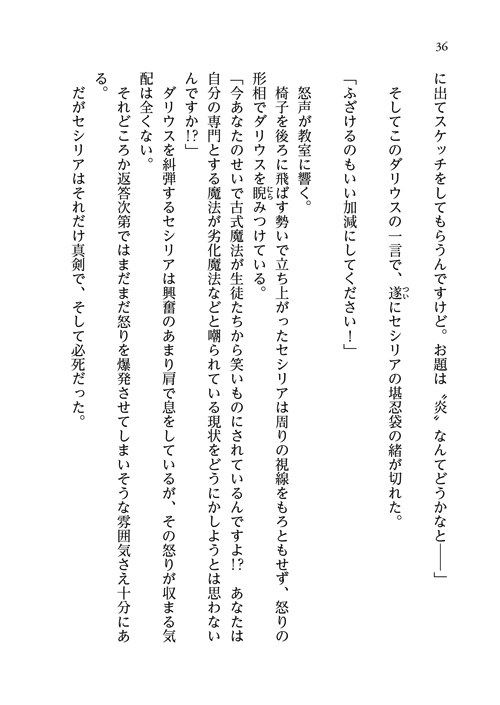 36
に出てスケッチをしてもらうんですけど。お題は〝炎〟なんてどうかなと――」
そしてこのダリウスの一言で、遂についにセシリアの堪忍袋の緒が切れた。
「ふざけるのもいい加減にしてください！」
怒声が教室に響く。
椅子を後ろに飛ばす勢いで立ち上がったセシリアは周りの視線をもろともせず、怒りの
形相でダリウスを睨にらみつけている。
「今あなたのせいで古式魔法が生徒たちから笑いものにされているんですよ!?　あなたは
自分の専門とする魔法が劣化魔法などと嘲られている現状をどうにかしようとは思わない
んですか!?」
ダリウスを糾弾するセシリアは興奮のあまり肩で息をしているが、その怒りが収まる気
配は全くない。
それどころか返答次第ではまだまだ怒りを爆発させてしまいそうな雰囲気さえ十分にあ
る。
だがセシリアはそれだけ真剣で、そして必死だった。